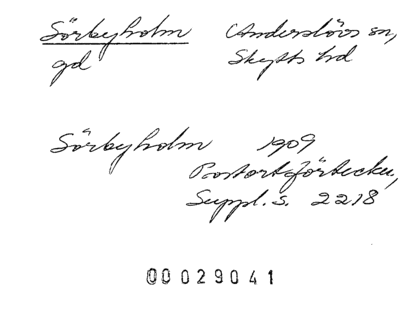 Sörbyholm Anderslövs sn,
gd Skytts hd
Sörbyholm 1909
Postortsförteckn,
Suppl. s. 2218
00029041